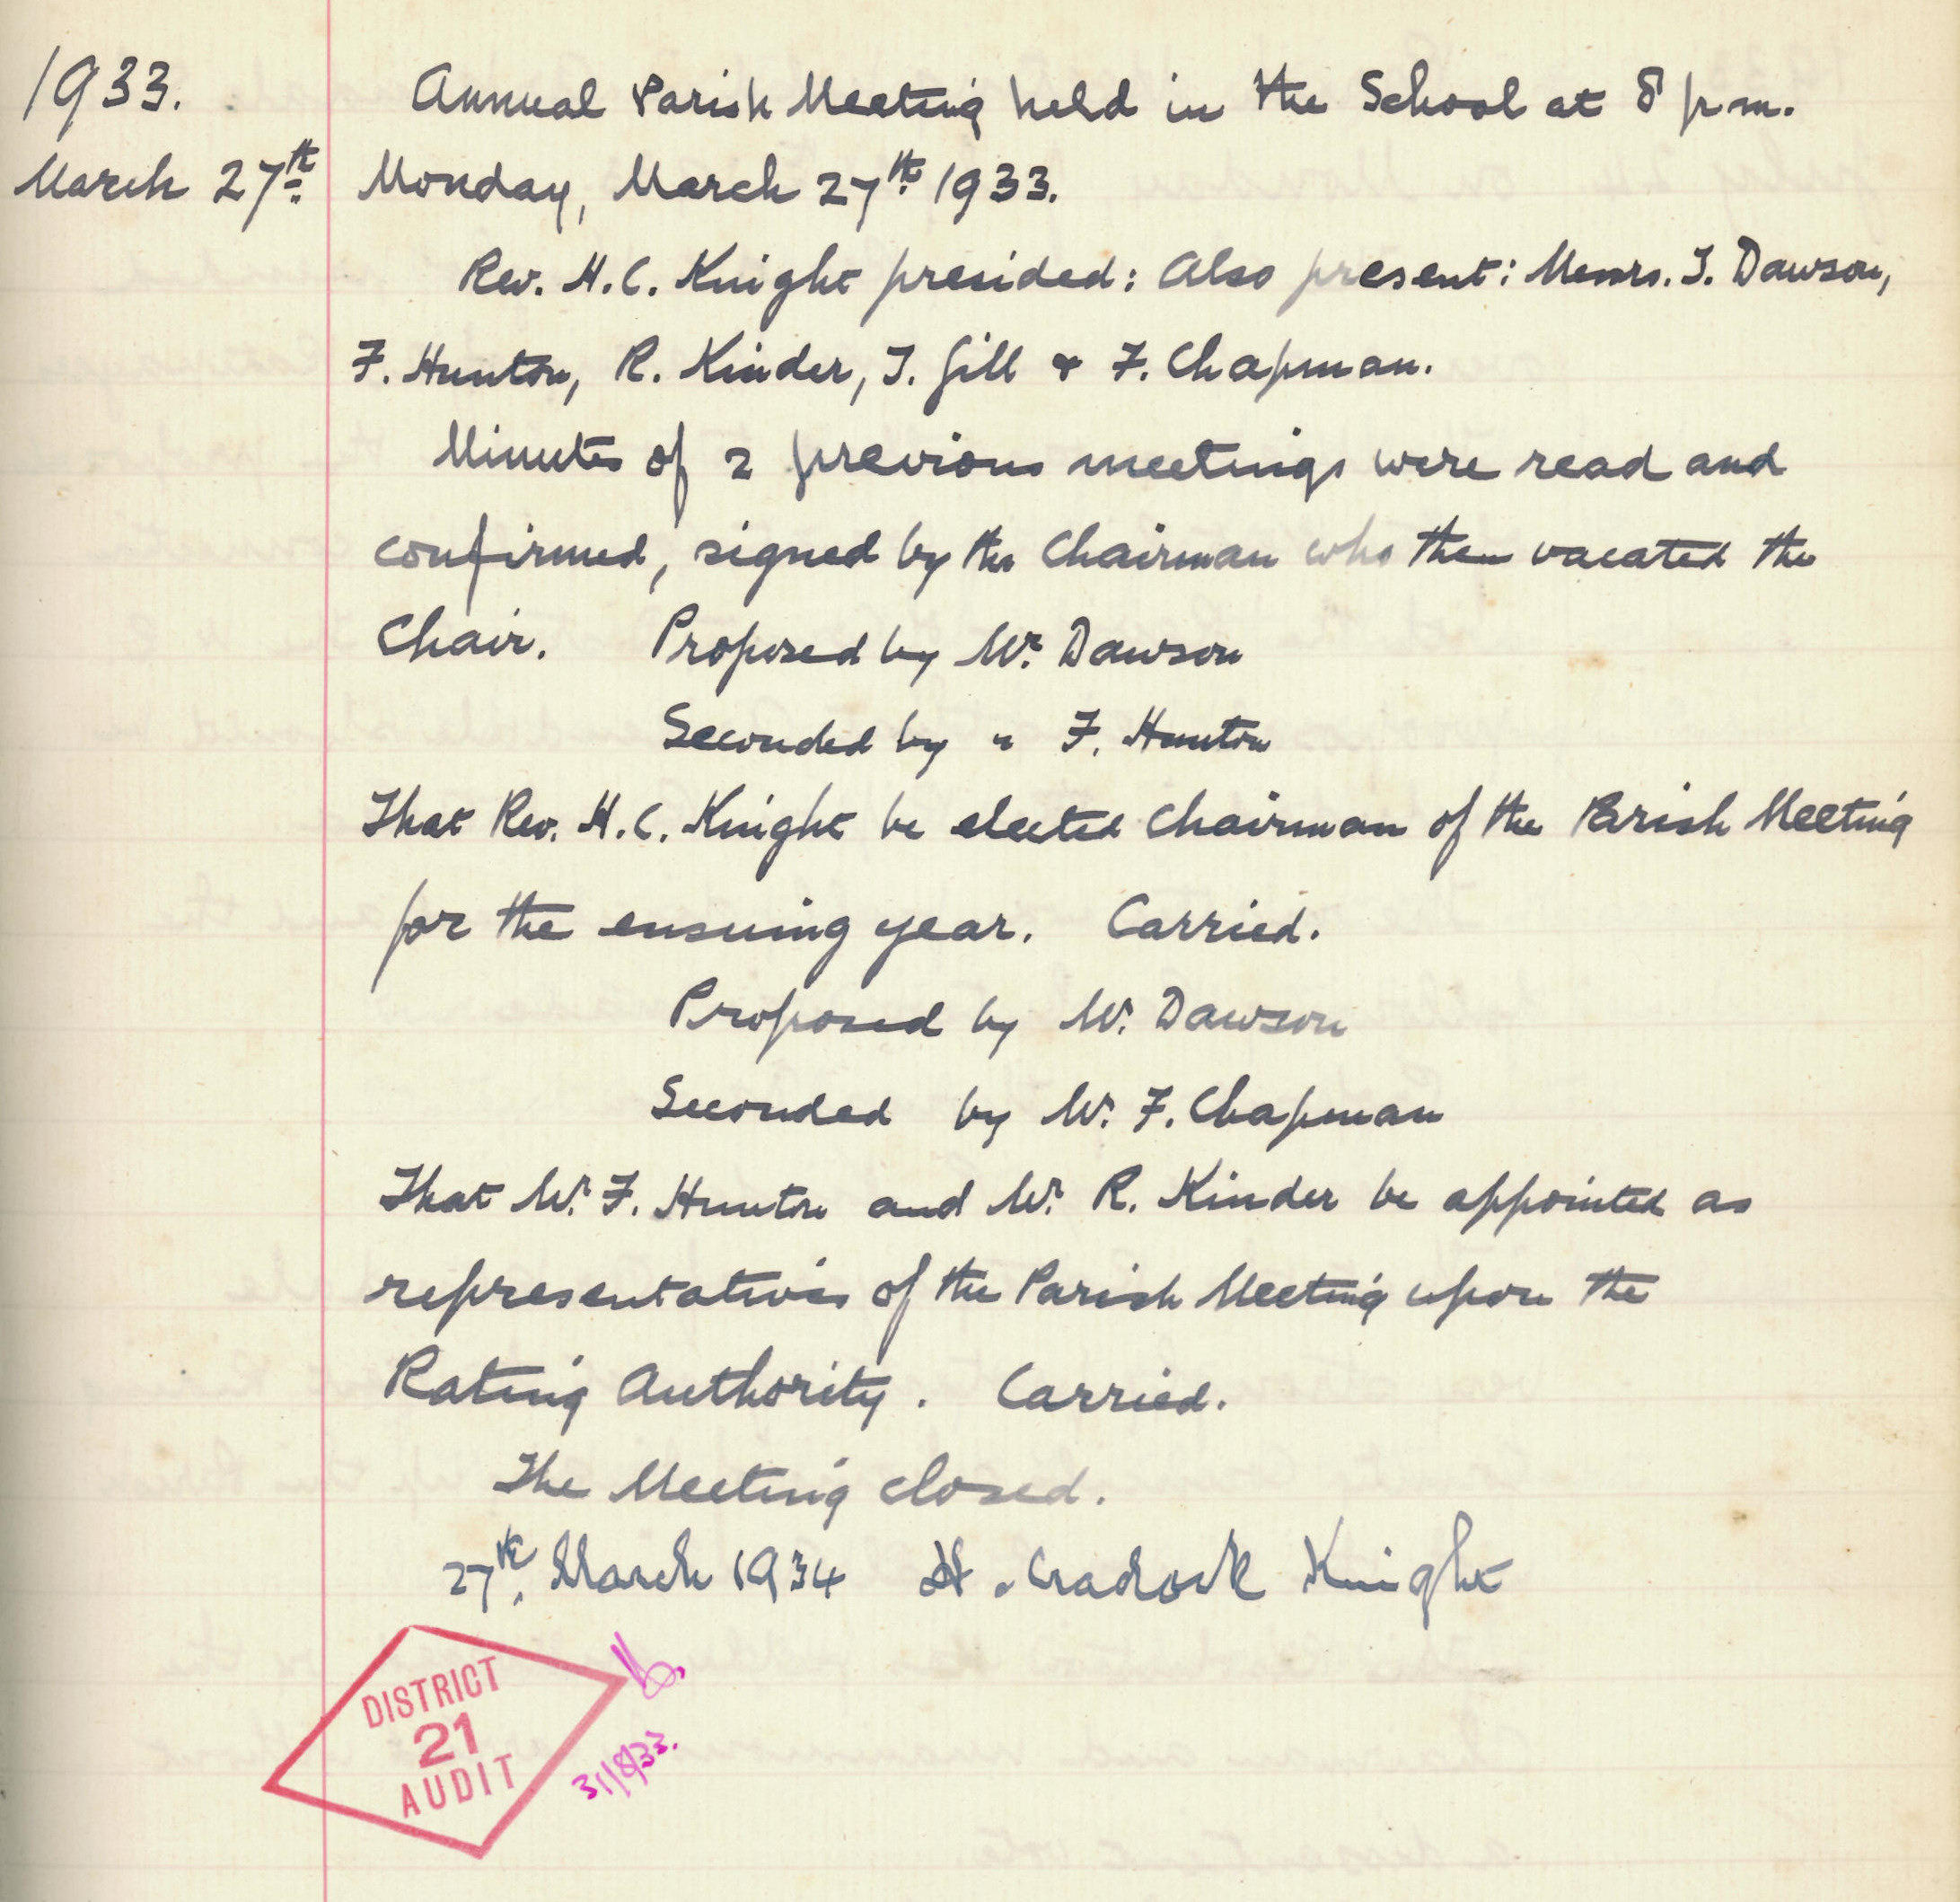 1933.
March 27th
Annual Parish Meeting held in the School at 8 p.m.
Monday, March 27th 1933.
Rev. H.C. Knight presided: Also present: Messrs. T. Dawson,
F. Hunton, R. Kinder, T. Gill & F. Chapman.
Minutes of 2 previous meetings were read and
confirmed, signed by the Chairman who then vacated the
Chair. Proposed by Mr. Dawson
Seconded by " F. Hunton
That Rev. H.C. Knight be elected Chairman of the Parish Meeting
for the ensuing year. Carried.
Proposed by Mr. Dawson
Seconded by Mr. F. Chapman
That Mr. F. Hunton and Mr. R. Kinder be appointed as
representatives of the Parish Meeting upon the
Rating Authority. Carried.
The Meeting closed.
27th March 1934 H. Cradock Knight
DISTRICT
21
AUDIT
31/8/33.